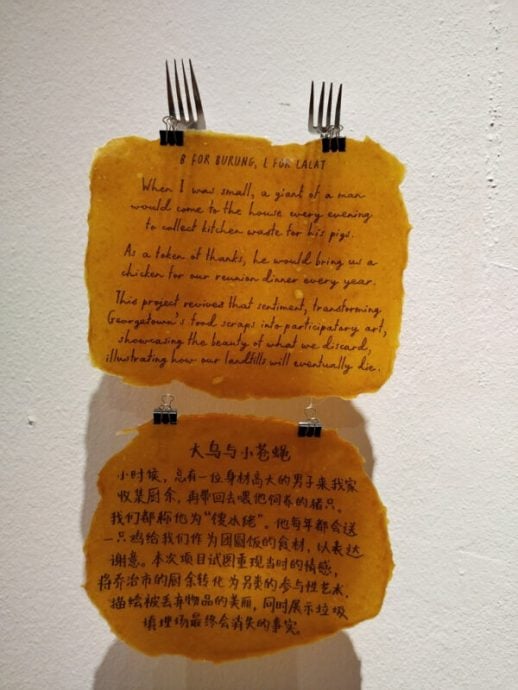 B FOR BURUNG, L FOR LALAT
When I was small, a giant of a man
would come to the house every evening
to collect kitchen waste for his pigs.
As a token of thanks, he would bring us a
chicken for our reunion dinner every year.
This project revives that sentiment, transforming
Georgetown's food scraps into participatory art,
showcasing the beauty of what we discard,
illustrating how our landfills will eventually die.
大鸟与小苍蝇
小时候，总有一位身材高大的男子来我家
收集厨余，再带回去喂他饲养的猪只。
我们都称他为“馊水佬”。他每年都会送
一只鸡给我们作为团圆饭的食材，以表达
谢意。本次项目试图重现当时的情感，
将乔治市的厨余转化为另类的参与性艺术，
描绘被丢弃物品的美丽，同时展示垃圾
填埋场最终会消失的事实